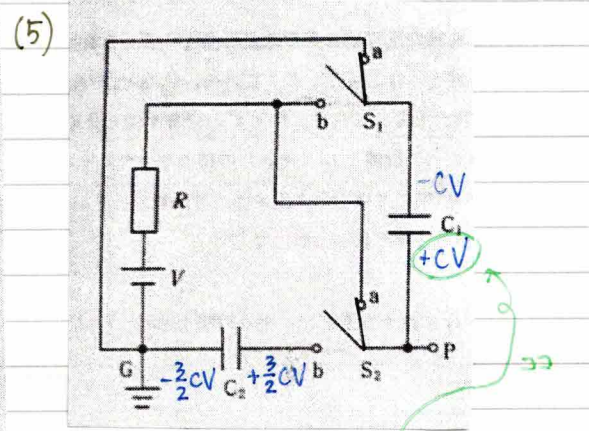 (5)
a
b
S₁
R
-CV
C₁
+CV
V
a
G
-3/2CV
C₂
+3/2CV
b
S₂
P
ココ